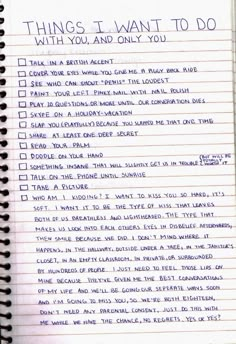 THINGS I WANT TO DO
WITH YOU, AND ONLY YOU
TALK IN A BRITISH ACCENT
COVER YOUR EYES WHILE YOU GIVE ME A PIGGY BACK RIDE
SEE WHO CAN SHOUT "PENIS" THE LOUDEST
PAINT YOUR LEFT PINKY NAIL WITH NAIL POLISH
PLAY 20 QUESTIONS OR MORE UNTIL OUR CONVERSATION DIES
SKYPE ON A HOLIDAY-VACATION
SLAP YOU (PLAYFULLY) BECAUSE YOU SLAPPED ME THAT ONE TIME
SHARE AT LEAST ONE DEEP SECRET
READ YOUR PALM
DOODLE ON YOUR HAND
SOMETHING INSANE THAT WILL SLIGHTLY GET US IN TROUBLE (BUT WILL BE TOTALLY WORTH IT)
TALK ON THE PHONE UNTIL SUNRISE
TAKE A PICTURE
WHO AM I KIDDING? I WANT TO KISS YOU SO HARD, IT'S
SOFT. I WANT IT TO BE THE TYPE OF KISS THAT LEAVES
BOTH OF US BREATHLESS AND LIGHTHEADED. THE TYPE THAT
MAKES US LOOK INTO EACH OTHERS EYES IN DISBELIEF AFTERWARDS,
THEN SMILE BECAUSE WE DID. I DON'T MIND WHERE IT
HAPPENS, IN THE HALLWAY, OUTSIDE UNDER A TREE, IN THE JANITOR'S
CLOSET, IN AN EMPTY CLASSROOM, IN PRIVATE OR SURROUNDED
BY HUNDREDS OF PEOPLE. I JUST NEED TO FEEL THOSE LIPS ON
MINE BECAUSE THEY'VE GIVEN ME THE BEST CONVERSATIONS
OF MY LIFE. AND WE'LL BE GOING OUR SEPERATE WAYS SOON
AND I'M GOING TO MISS YOU, SO WE'RE BOTH EIGHTEEN,
DON'T NEED ANY PARENTAL CONSENT, JUST DO THIS WITH
ME WHILE WE HAVE THE CHANCE, NO REGRETS. YES OR YES?